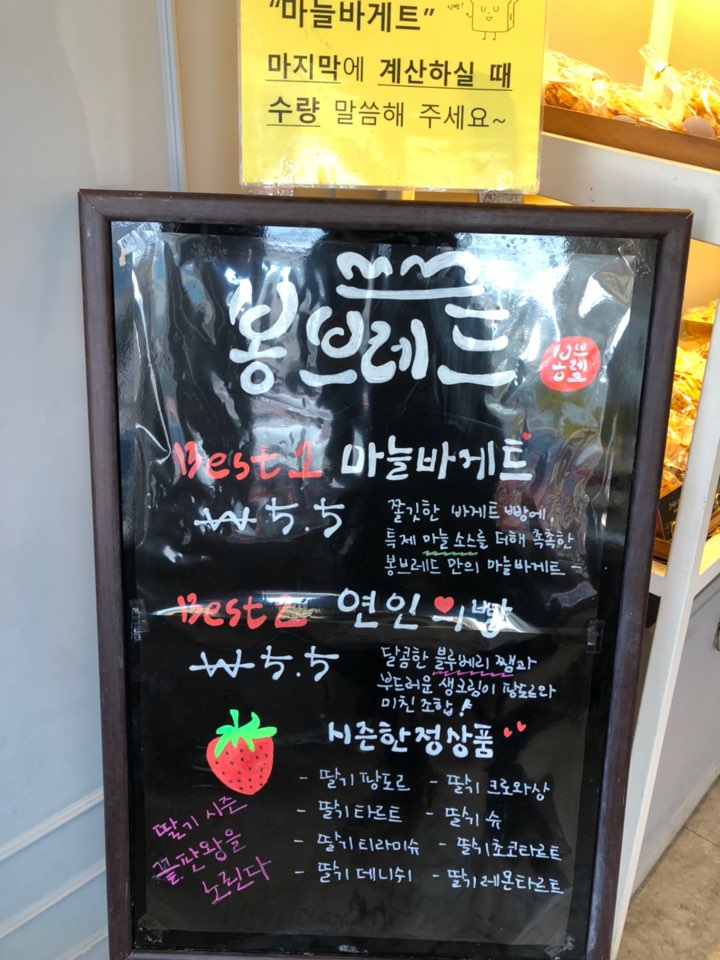 "마늘바게트"
마지막에 계산하실 때
수량 말씀해 주세요~
봉브레드
봉브레드
Best 1 마늘바게트
₩ 5.5
쫄깃한 바게트 빵에,
특제 마늘 소스를 더해 촉촉한
봉브레드 만의 마늘바게트 ~
Best 2 연인의 빵
₩ 5.5
달콤한 블루베리 쨈과
부드러운 생크림이 팡도르와
미친 조합!
시즌한정상품
- 딸기 팡도르 - 딸기 크로와상
- 딸기 타르트 - 딸기 슈
- 딸기 티라미슈 - 딸기 초코타르트
- 딸기 데니쉬 - 딸기 레몬타르트
딸기 시즌
끝판왕을
노린다